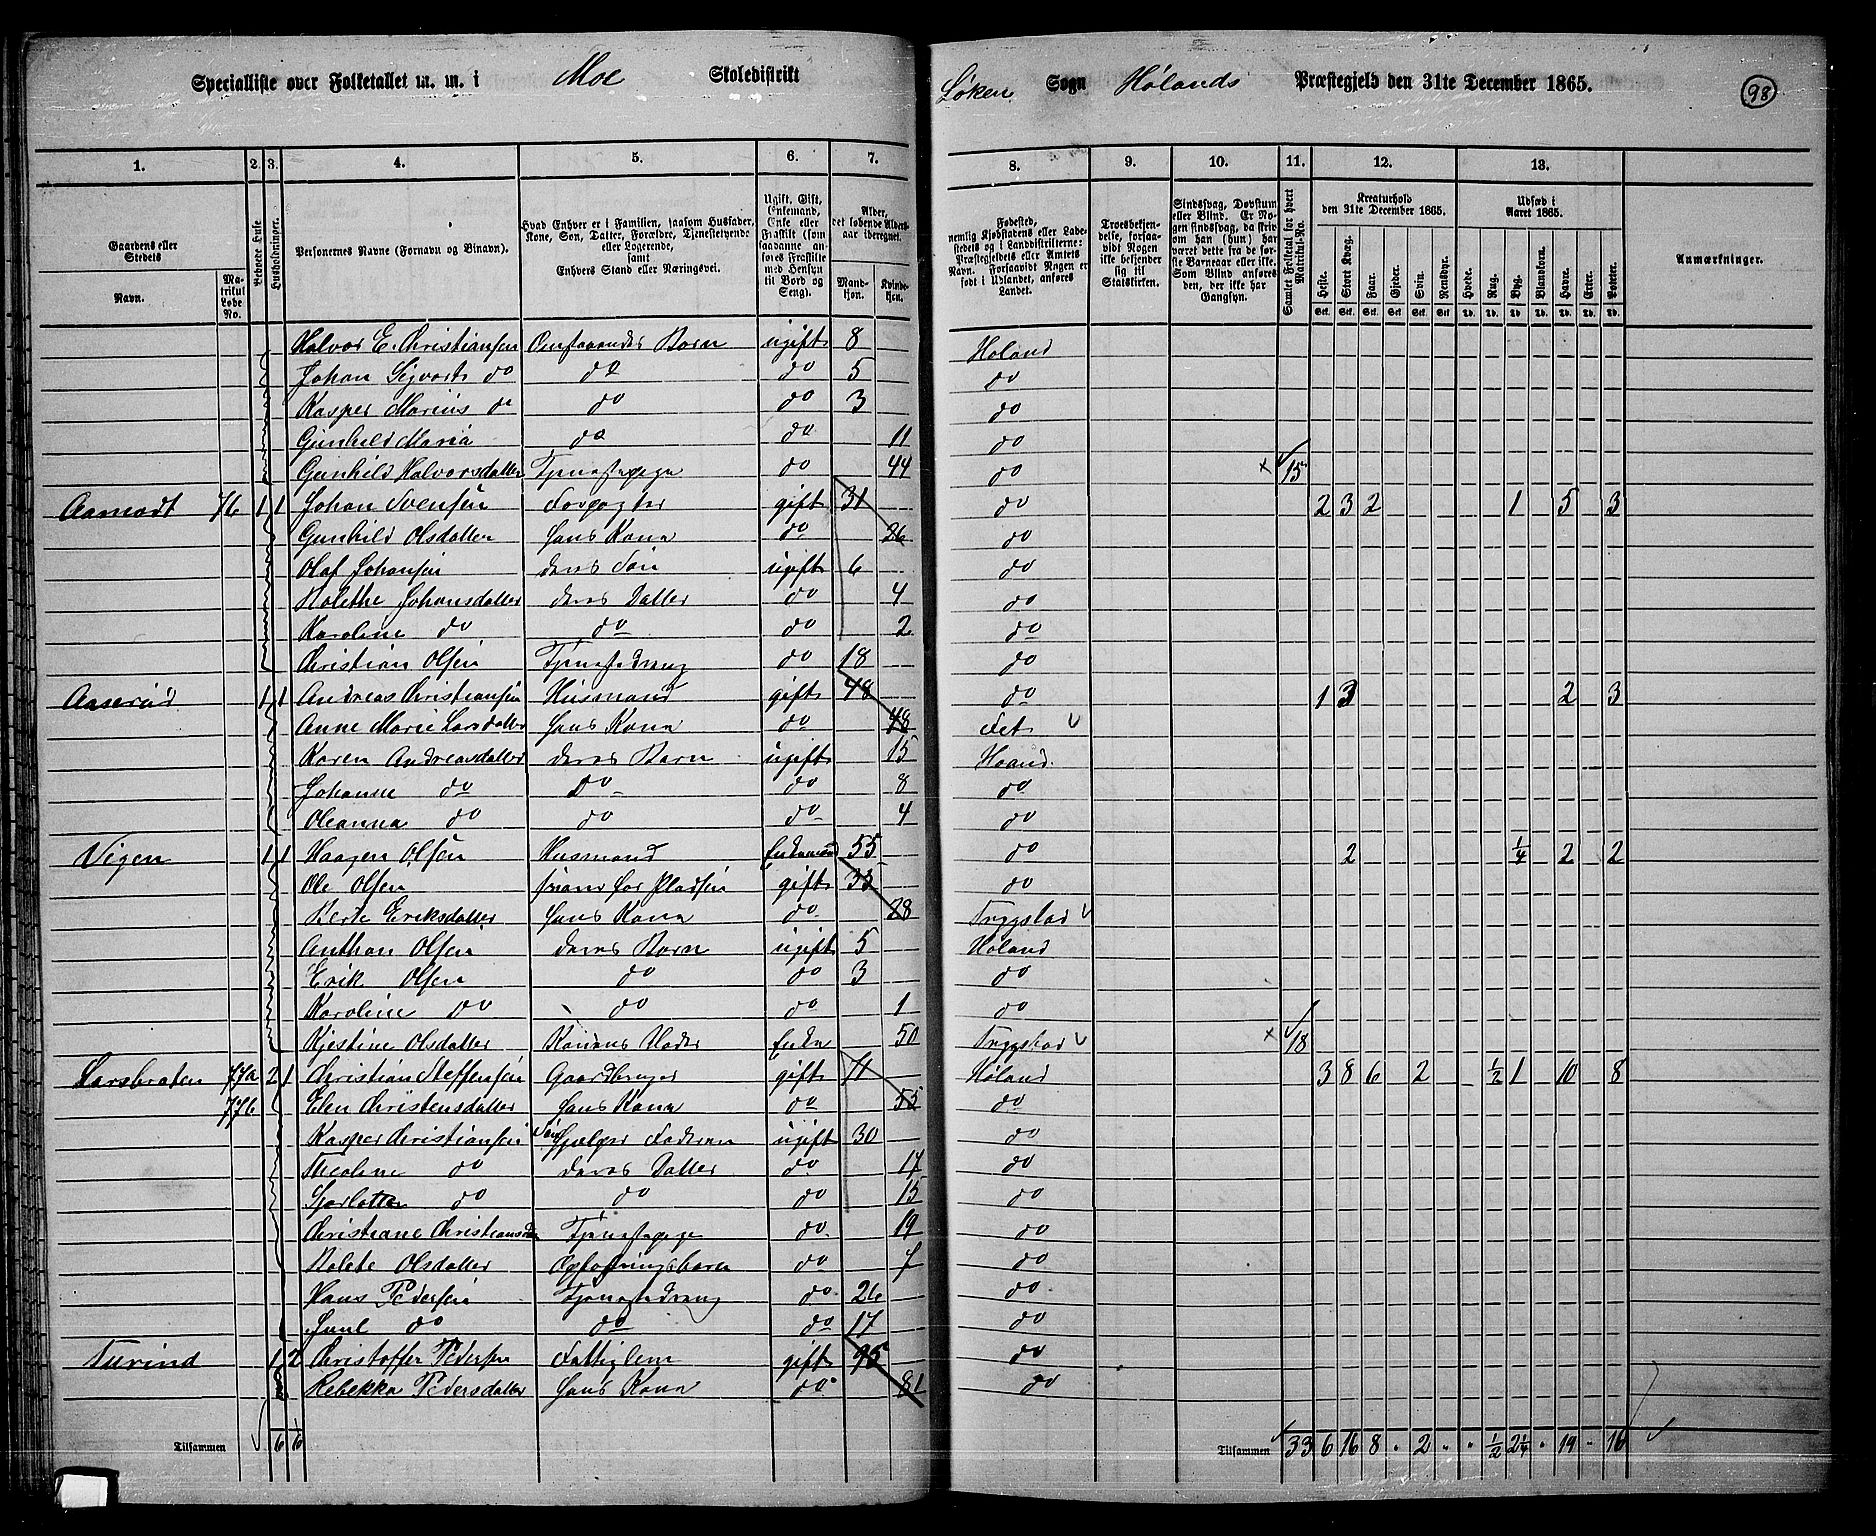 Specialliste over Folketallet m. m. i Moe Skoledistrikt Løken Sogn Hølands Præstegjeld den 31te December 1865. 98
1. 2. 3. 4. 5. 6. 7. 8. 9. 10. 11. 12. 13.
Gaardens eller Stedets Navn. Matrikul Løbe No. Beboede Huse Husholdninger. Personernes Navne (Fornavn og Binavn). Hvad Enhver er i Familien, saasom Husfader, Kone, Søn, Datter, Forældre, Tjenestetyende eller Logerende, samt Enhvers Stand eller Næringsvei. Ugift, Gift, Enkemand, Enke eller Fraskilt Alder, det løbende Aldersaar iberegnet. Mandkjøn. Kvindekjøn.
Fødested, nemlig Kjøbstadens eller Ladestedets og i Landdistrikterne: Præstegjeldets eller Amtets Navn. Forsaavidt Nogen er født i Udlandet, anføres Landet. Troesbekjendelse, forsaavidt Nogen ikke bekjender sig til Statskirken. Sindssvag, Døvstum eller Blind. Samlet Folketal for hvert Matrikul-No. Kreaturhold den 31te December 1865. Udsæd i Aaret 1865. Anmærkninger.
Heste. Stort Kvæg. Faar. Gjeder. Svin. Rensdyr. Hvede. Rug. Byg. Blandkorn. Havre. Erter. Poteter.
Halvor E. Christiansen Ovenstaaendes Børn ugift 8 Høland
Johan Sigvart do do do 5 do
Kasper Marius do do do 3 do
Gunhild Maria do do 11 do
Gunhild Halvorsdatter Tjenestepige do 44 do × 15
Aamodt 76 1 1 Johan Svensen Forpagter gift 31 do 2 3 2 1 5 3
Gunhild Olsdatter Hans Kone do 26 do
Olaf Johansen deres Søn ugift 6 do
Holethe Johansdatter deres Datter do 4 do
Karoline do do do 2 do
Christian Olsen Tjenestedreng do 18 do
Aaserud 1 1 Andreas Christiansen Husmand gift 48 do 1 3 2 3
Anne Marie Larsdatter Hans Kone do 48 Fet
Karen Andreasdatter deres Barn ugift 15 Høland
Johanne do do do 8 do
Oleanna do do do 4 do
Vigen 1 1 Haagen Olsen Husmand Enkemand 55 do 2 1/4 2 2
Ole Olsen gift 33 do
Berte Eriksdatter Hans Kone do 28 Trygstad
Anthon Olsen deres Børn ugift 5 Høland
Erik Olsen do do 3 do
Karoline do do do 1 do
Kjestine Olsdatter Konens Moder Enke 50 Trygstad × 18
Larsbraten 77a 2 1 Christian Steffensen Gaardbruger gift 71 Høland 3 8 6 2 1/2 1 10 8
77b Elen Christensdatter Hans Kone do 55 do
Kasper Christiansen Søn hjelper Faderen ugift 30 do
Nicoline do deres Datter do 17 do
Sjarlotte do do do 15 do
Christiane Christiansd Tjenestepige do 19 do
Bolete Olsdatter Opfostringsbarn do 7 do
Hans Pedersen Tjenestedreng do 26 do
Juul do do do 17 do
Turind 1 2 Christoffer Pedersen Fattiglem gift 75 do
Rebekka Pedersdatter Hans Kone do 81 do
Tilsammen 6 6 Tilsammen 33 6 16 8 2 1/2 2 1/4 19 16